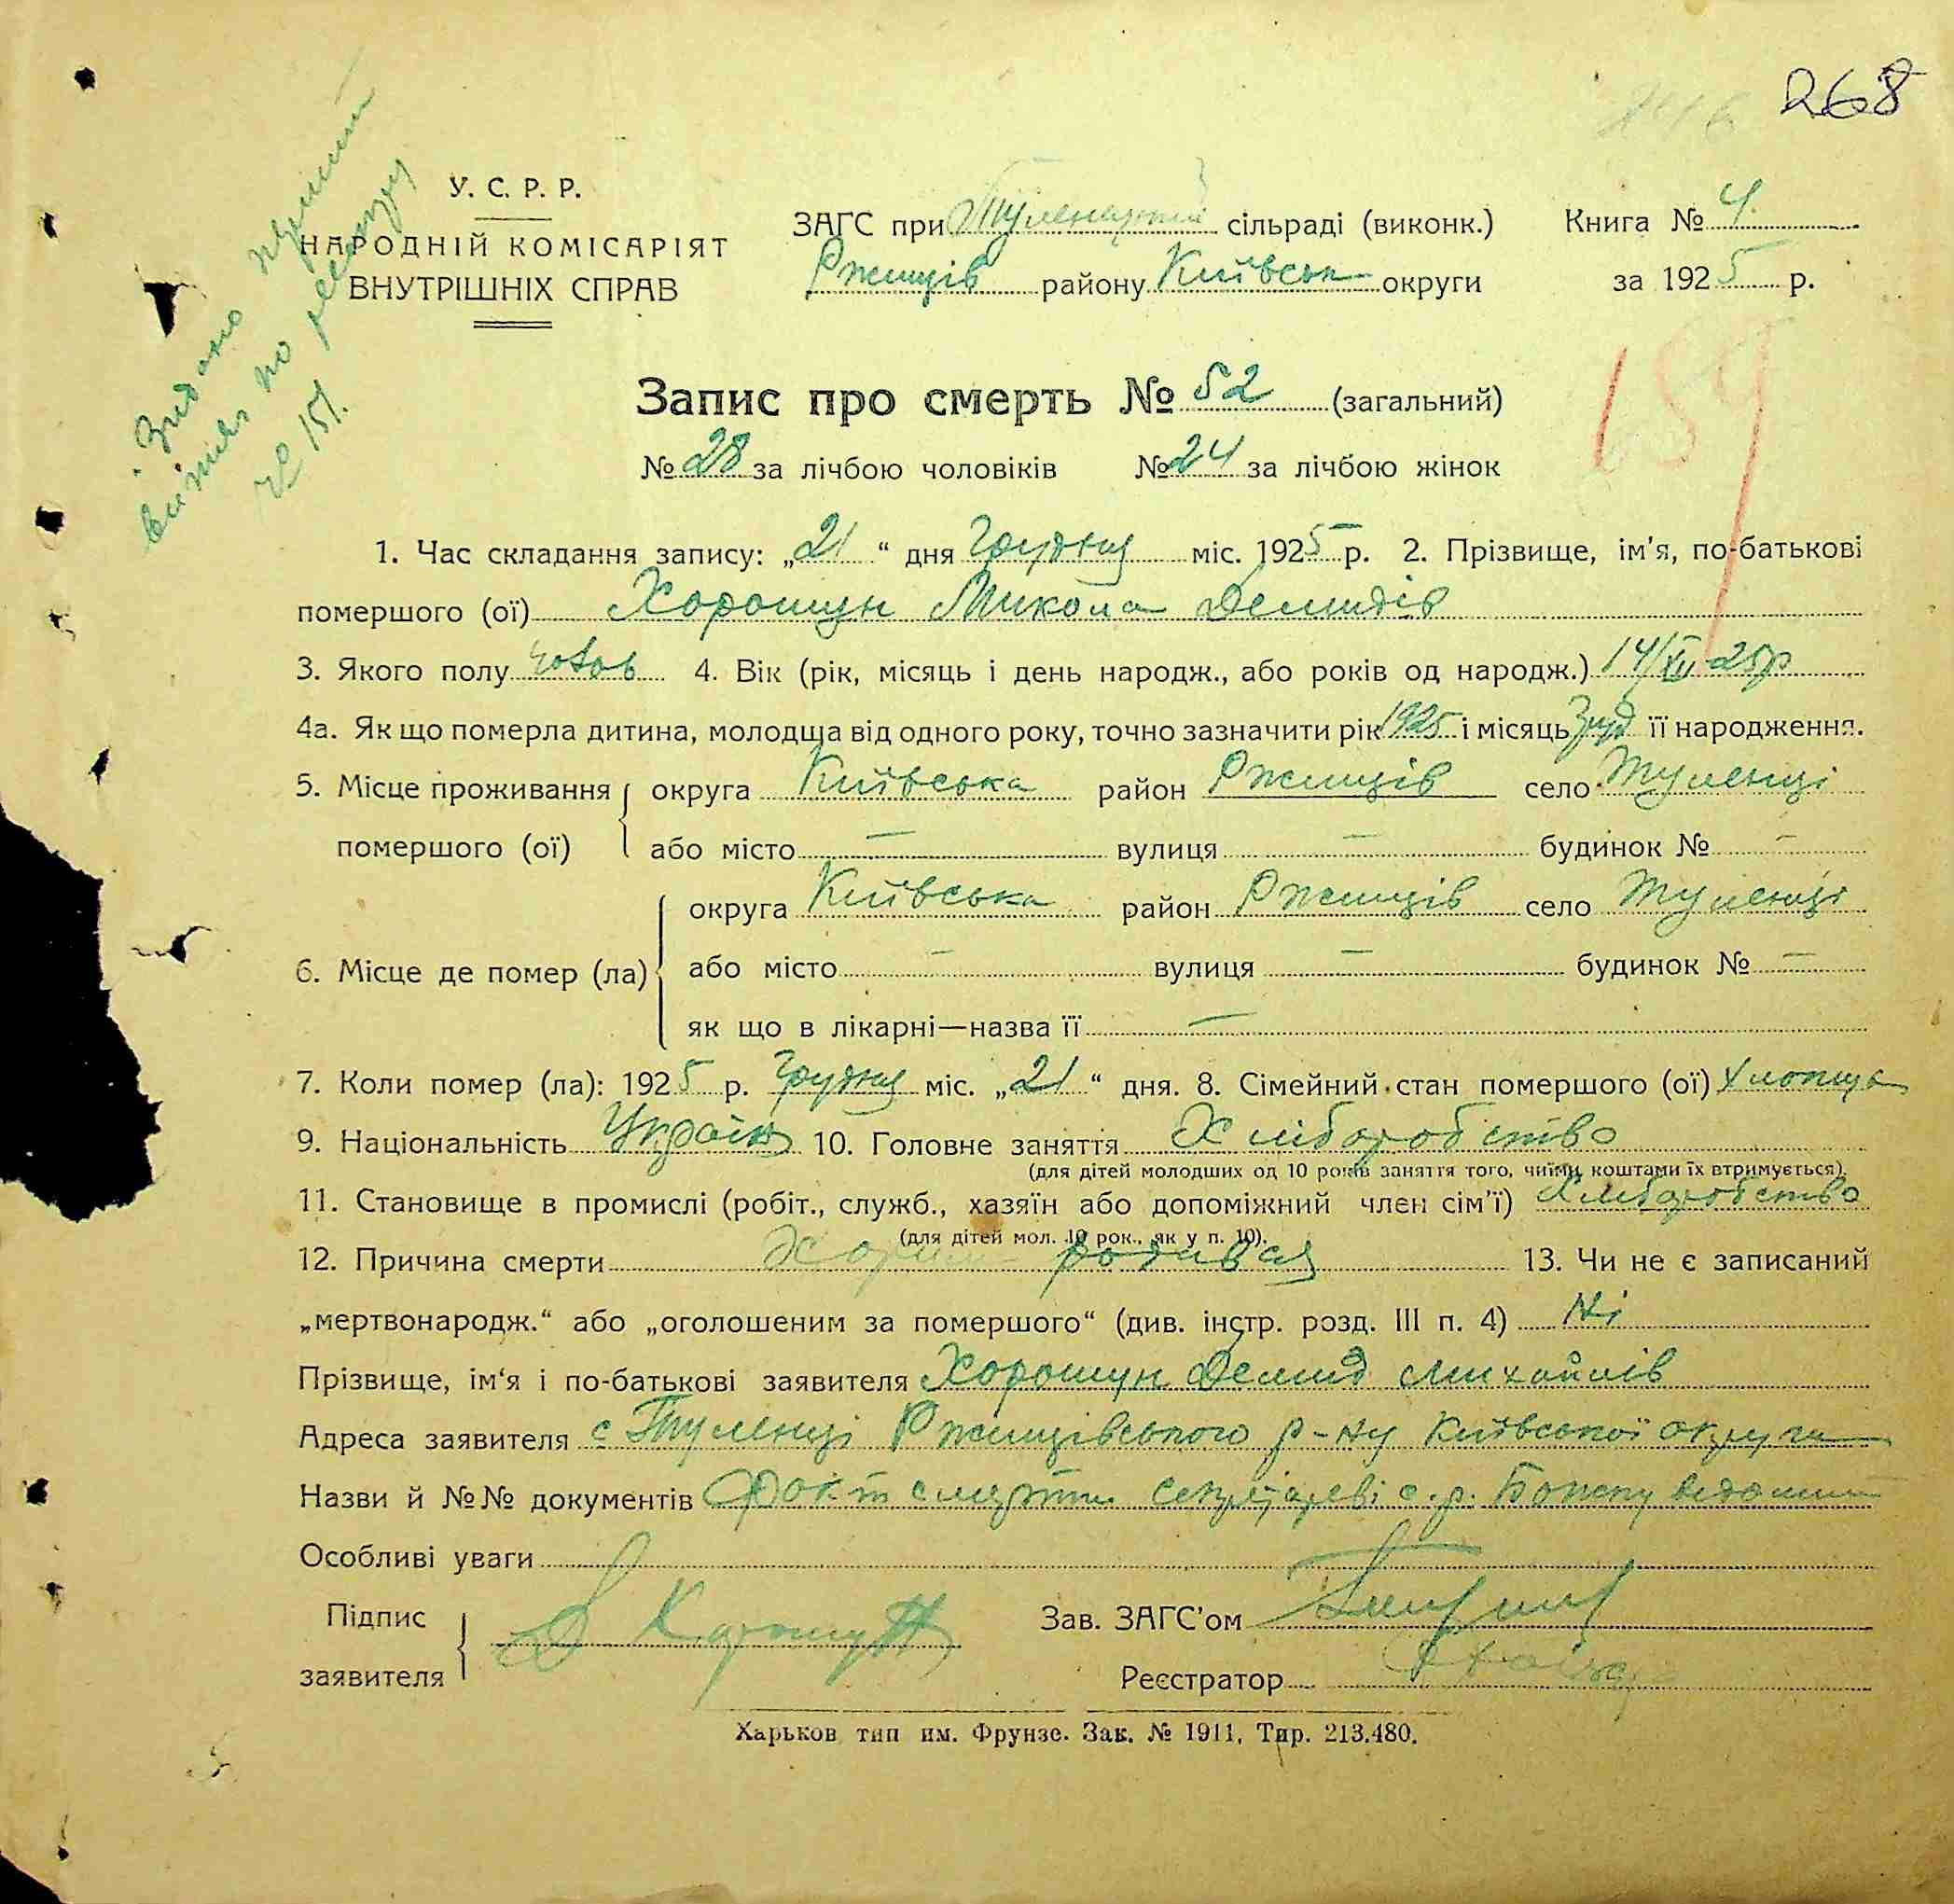 268
146
У. С. Р. Р.
НАРОДНІЙ КОМІСАРІЯТ
ВНУТРІШНІХ СПРАВ
ЗАГС при Туленецкій сільраді (виконк.)
Книга № 4
Ржищів району Київськ округи
за 1925 р.
Видано
витяг по
№ 151.
189
Запис про смерть № 52 (загальний)
№ 28 за лічбою чоловіків № 24 за лічбою жінок
1. Час складання запису: „21“ дня Грудня міс. 1925 р. 2. Прізвище, ім'я, по-батькові
помершого (ої) Хорошун Микола Демидів
3. Якого полу чолов 4. Вік (рік, місяць і день народж., або років од народж.) 14/XII 25р
4а. Як що померла дитина, молодща від одного року, точно зазначити рік 1925 і місяць Груд її народження.
5. Місце проживання округа Київська район Ржищів село Туленці
помершого (ої) або місто — вулиця — будинок № —
округа Київська район Ржищів село Туленці
6. Місце де помер (ла) або місто — вулиця — будинок № —
як що в лікарні—назва її —
7. Коли помер (ла): 1925 р. Грудня міс. „21“ дня. 8. Сімейний стан помершого (ої) Хлопця
9. Національність Україн 10. Головне заняття Хліборобство
(для дітей молодших од 10 років заняття того, чиїми коштами їх втримується).
11. Становище в промислі (робіт., служб., хазяїн або допоміжний член сім'ї) Хліборобство
(для дітей мол. 10 рок., як у п. 10).
12. Причина смерти родився 13. Чи не є записаний
„мертвонародж.“ або „оголошеним за помершого“ (див. інстр. розд. III п. 4) Ні
Прізвище, ім'я і по-батькові заявителя Хорошун Демид Михайлів
Адреса заявителя с Туленці Ржищівського р-ну Київської округи
Назви й №№ документів Факт смерти секретареві с.р.
Особливі уваги
Підпис
заявителя
Зав. ЗАГС'ом
Реєстратор
Харьков тип им. Фрунзе. Зак. № 1911. Тир. 213.480.